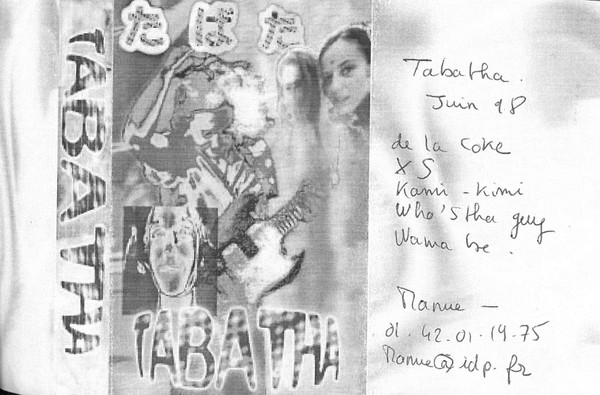 TABATHA
たばた
TABATHA
Tabatha.
Juin 98
de la Coke
XS
Kami - Kimi
Who's tha guy
Wama be.
Manue —
01.42.01.19.75
Manue@idp.fr